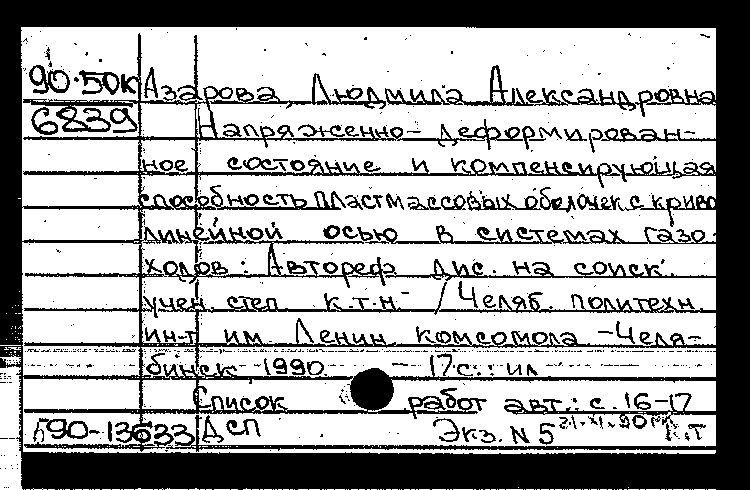 90-50к Азарова, Людмила Александровна
6839 Напряженно-деформирован-
ное состояние и компенсирующая
способность пластмассовых оболочек с криво
линейной осью в системах газо-
ходов: Автореф дис. на соиск.
учен. степ к.т.н. / Челяб. политехн.
ин-т им Ленин. комсомола -Челя-
бинск 1990 - 17с.: ил
Список работ авт.: с. 16-17
590-13633 ДСП Экз. N 5